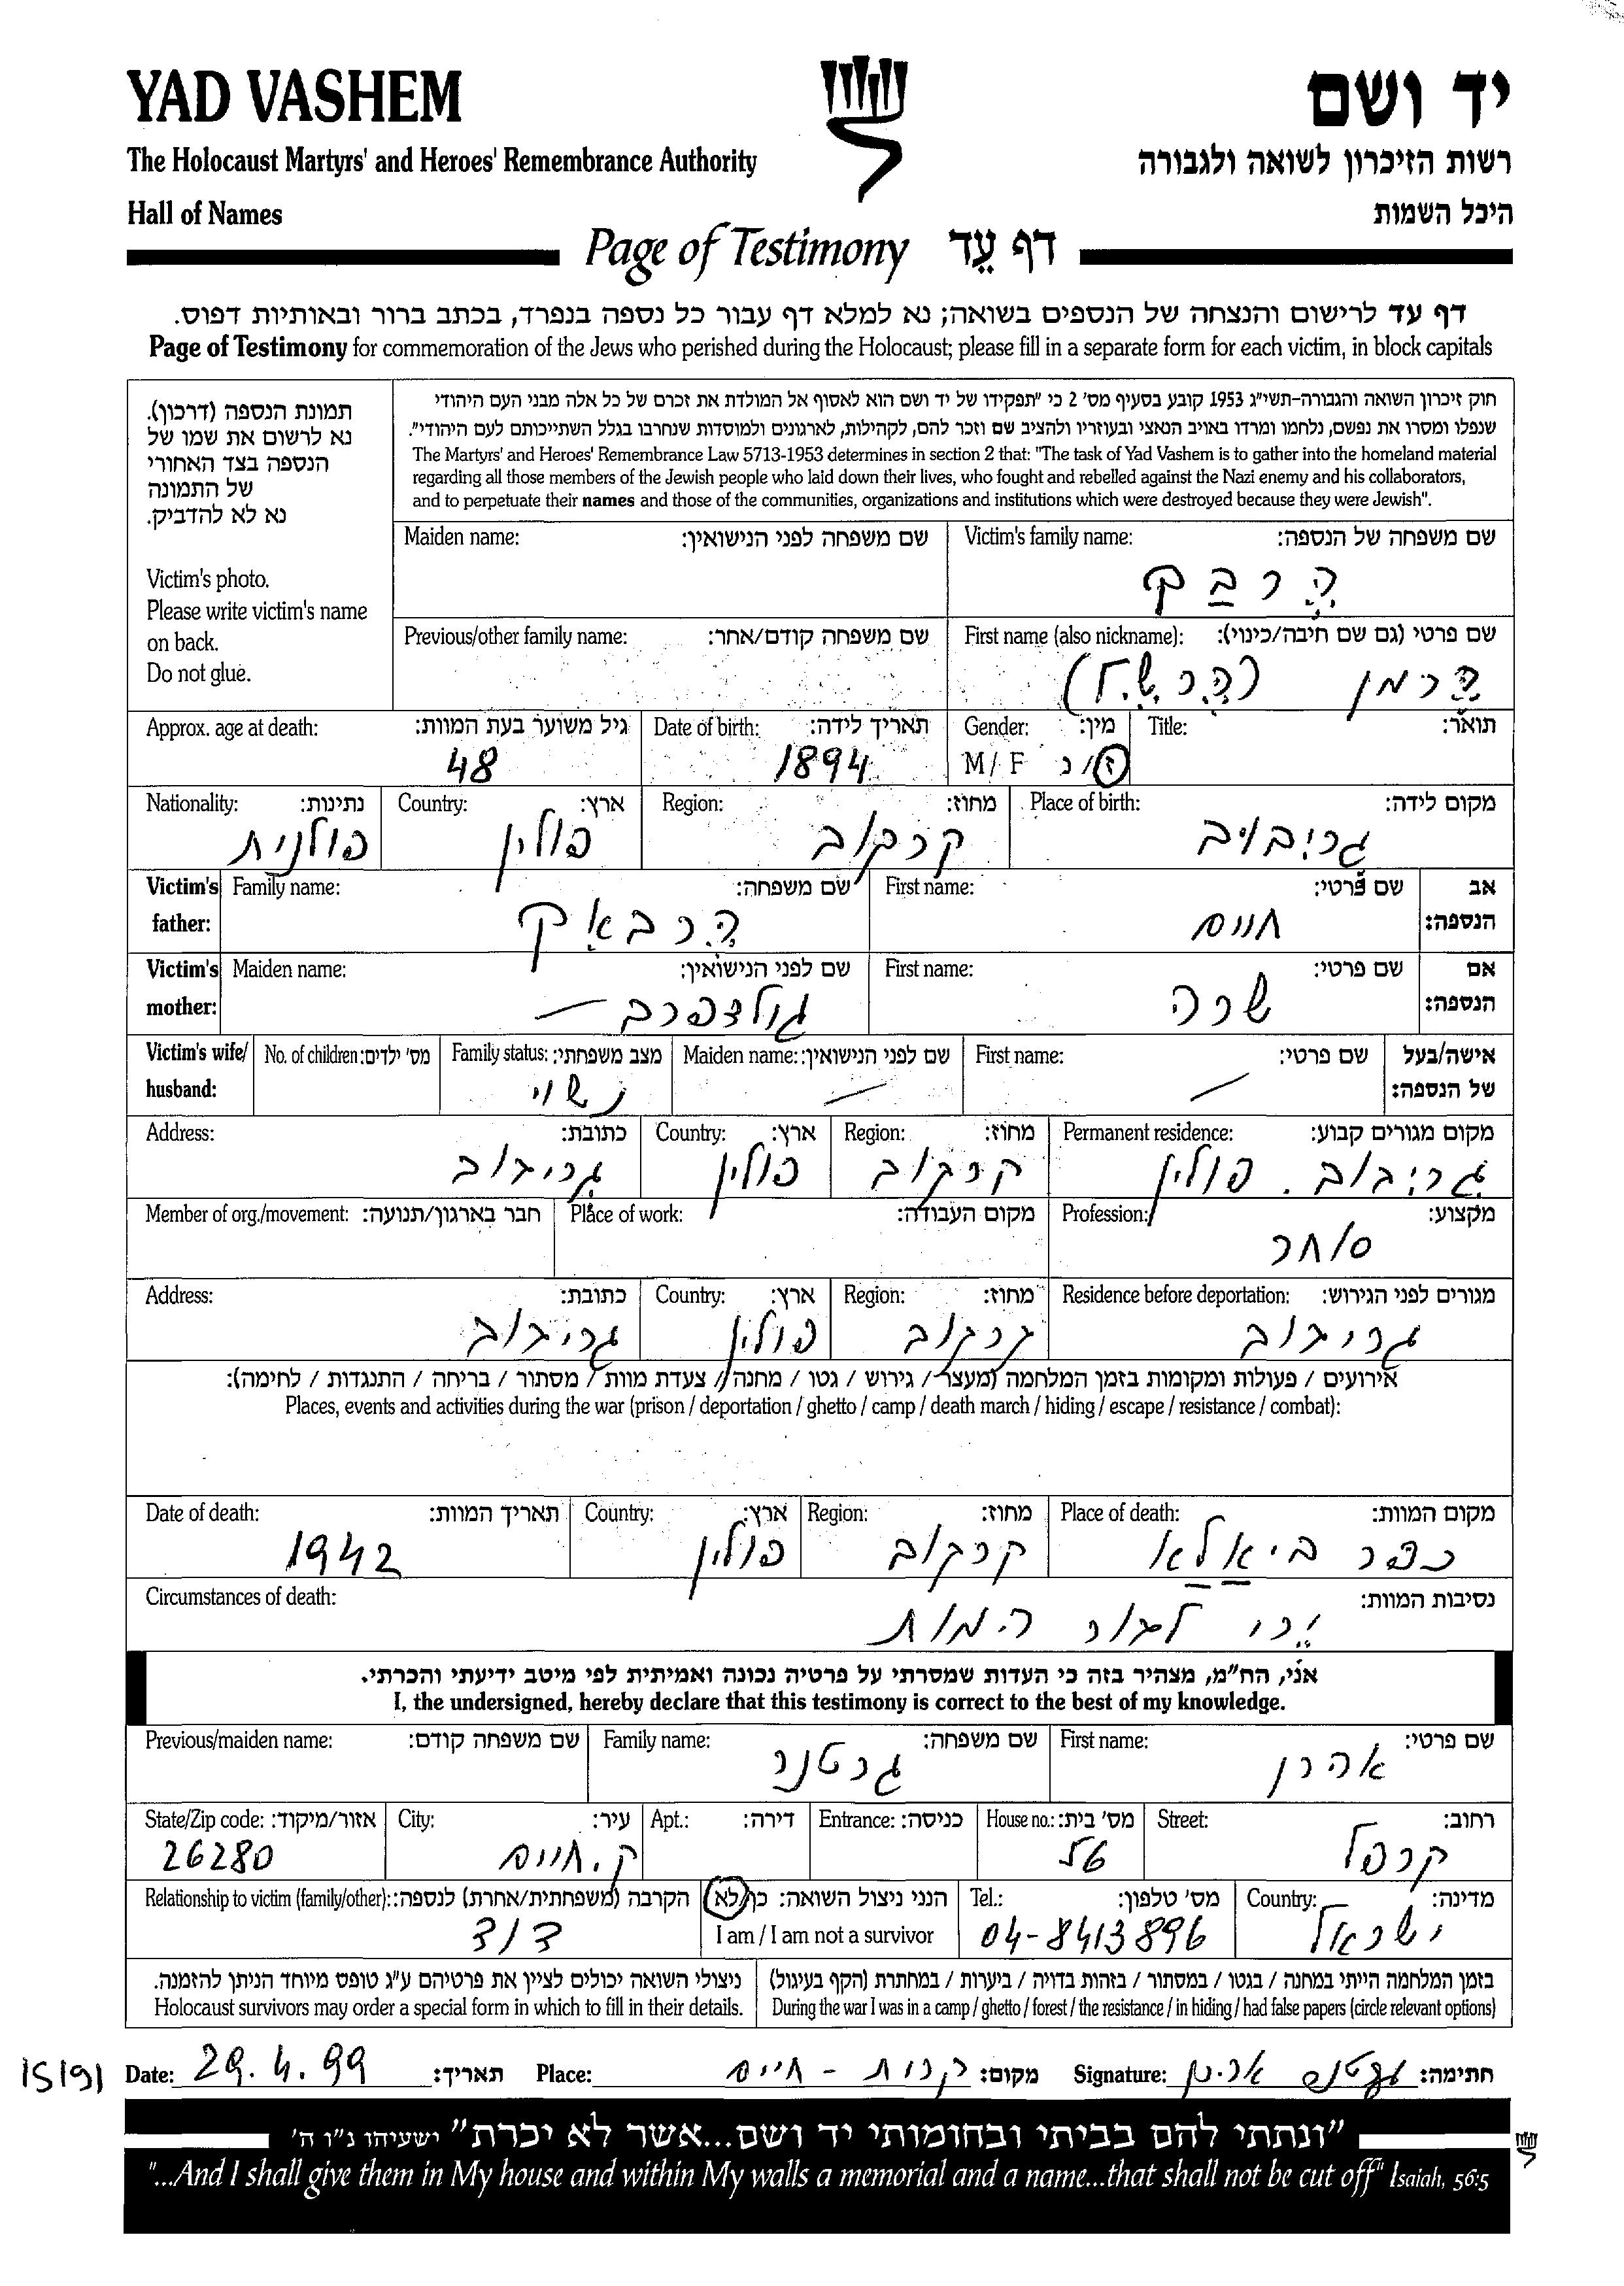 YAD VASHEM
יד ושם
The Holocaust Martyrs' and Heroes' Remembrance Authority
רשות הזיכרון לשואה ולגבורה
Hall of Names
היכל השמות
Page of Testimony דף עֵד
דף עד לרישום והנצחה של הנספים בשואה; נא למלא דף עבור כל נספה בנפרד, בכתב ברור ובאותיות דפוס.
Page of Testimony for commemoration of the Jews who perished during the Holocaust; please fill in a separate form for each victim, in block capitals
תמונת הנספה (דרכון).
נא לרשום את שמו של
הנספה בצד האחורי
של התמונה
נא לא להדביק.
Victim's photo.
Please write victim's name
on back.
Do not glue.
חוק זיכרון השואה והגבורה-תשי"ג 1953 קובע בסעיף מס' 2 כי "תפקידו של יד ושם הוא לאסוף אל המולדת את זכרם של כל אלה מבני העם היהודי
שנפלו ומסרו את נפשם, נלחמו ומרדו באויב הנאצי ובעוזריו ולהציב שם וזכר להם, לקהילות, לארגונים ולמוסדות שנחרבו בגלל השתייכותם לעם היהודי".
The Martyrs' and Heroes' Remembrance Law 5713-1953 determines in section 2 that: "The task of Yad Vashem is to gather into the homeland material
regarding all those members of the Jewish people who laid down their lives, who fought and rebelled against the Nazi enemy and his collaborators,
and to perpetuate their names and those of the communities, organizations and institutions which were destroyed because they were Jewish".
Maiden name: שם משפחה לפני הנישואין:
Victim's family name: שם משפחה של הנספה:
הרבק
Previous/other family name: שם משפחה קודם/אחר:
First name (also nickname): שם פרטי (גם שם חיבה/כינוי):
הרמן
Approx. age at death: גיל משוער בעת המוות:
48
Date of birth: תאריך לידה:
1894
Gender: מין:
M/F ז/נ
Title: תואר:
Nationality: נתינות:
פולנית
Country: ארץ:
פולין
Region: מחוז:
קרקוב
Place of birth: מקום לידה:
גריבוב
Victim's father:
Family name: שם משפחה:
הרבאק
First name: שם פרטי:
חיים
אב הנספה:
Victim's mother:
Maiden name: שם לפני הנישואין:
גולדפרב
First name: שם פרטי:
שרה
אם הנספה:
Victim's wife/ husband:
No. of children: מס' ילדים:
Family status: מצב משפחתי:
נשוי
Maiden name: שם לפני הנישואין:
First name: שם פרטי:
אישה/בעל של הנספה:
Address: כתובת:
גריבוב
Country: ארץ:
פולין
Region: מחוז:
קרקוב
Permanent residence: מקום מגורים קבוע:
גריבוב. פולין
Member of org./movement: חבר בארגון/תנועה:
Place of work: מקום העבודה:
Profession: מקצוע:
סוחר
Address: כתובת:
גריבוב
Country: ארץ:
פולין
Region: מחוז:
קרקוב
Residence before deportation: מגורים לפני הגירוש:
גריבוב
אירועים / פעולות ומקומות בזמן המלחמה (מעצר / גירוש / גטו / מחנה / צעדת מוות / מסתור / בריחה / התנגדות / לחימה):
Places, events and activities during the war (prison / deportation / ghetto / camp / death march / hiding / escape / resistance / combat):
Date of death: תאריך המוות:
1942
Country: ארץ:
פולין
Region: מחוז:
קרקוב
Place of death: מקום המוות:
כפר ביאלא
Circumstances of death: נסיבות המוות:
ירי לבור המות
אני, הח"מ, מצהיר בזה כי העדות שמסרתי על פרטיה נכונה ואמיתית לפי מיטב ידיעתי והכרתי.
I, the undersigned, hereby declare that this testimony is correct to the best of my knowledge.
Previous/maiden name: שם משפחה קודם:
Family name: שם משפחה:
גרטנר
First name: שם פרטי:
אהרן
State/Zip code: אזור/מיקוד:
26280
City: עיר:
ק. חיים
Apt.: דירה:
Entrance: כניסה:
House no.: מס' בית:
Street: רחוב:
קרפל
Relationship to victim (family/other): הקרבה (משפחתית/אחרת) לנספה:
דוד
הנני ניצול השואה: כן/לא
I am / I am not a survivor
Tel.: מס' טלפון:
04-8413896
Country: מדינה:
ישראל
ניצולי השואה יכולים לציין את פרטיהם ע"ג טופס מיוחד הניתן להזמנה.
Holocaust survivors may order a special form in which to fill in their details.
בזמן המלחמה הייתי במחנה / בגטו / במסתור / בזהות בדויה / ביערות / במחתרת (הקף בעיגול)
During the war I was in a camp / ghetto / forest / the resistance / in hiding / had false papers (circle relevant options)
Date: 29.4.99 תאריך: Place: קרית - חיים מקום: Signature: גרטנר אהרן חתימה:
"ונתתי להם בביתי ובחומותי יד ושם...אשר לא יכרת" ישעיהו נ"ו ה'
"...And I shall give them in My house and within My walls a memorial and a name...that shall not be cut off" Isaiah, 56:5